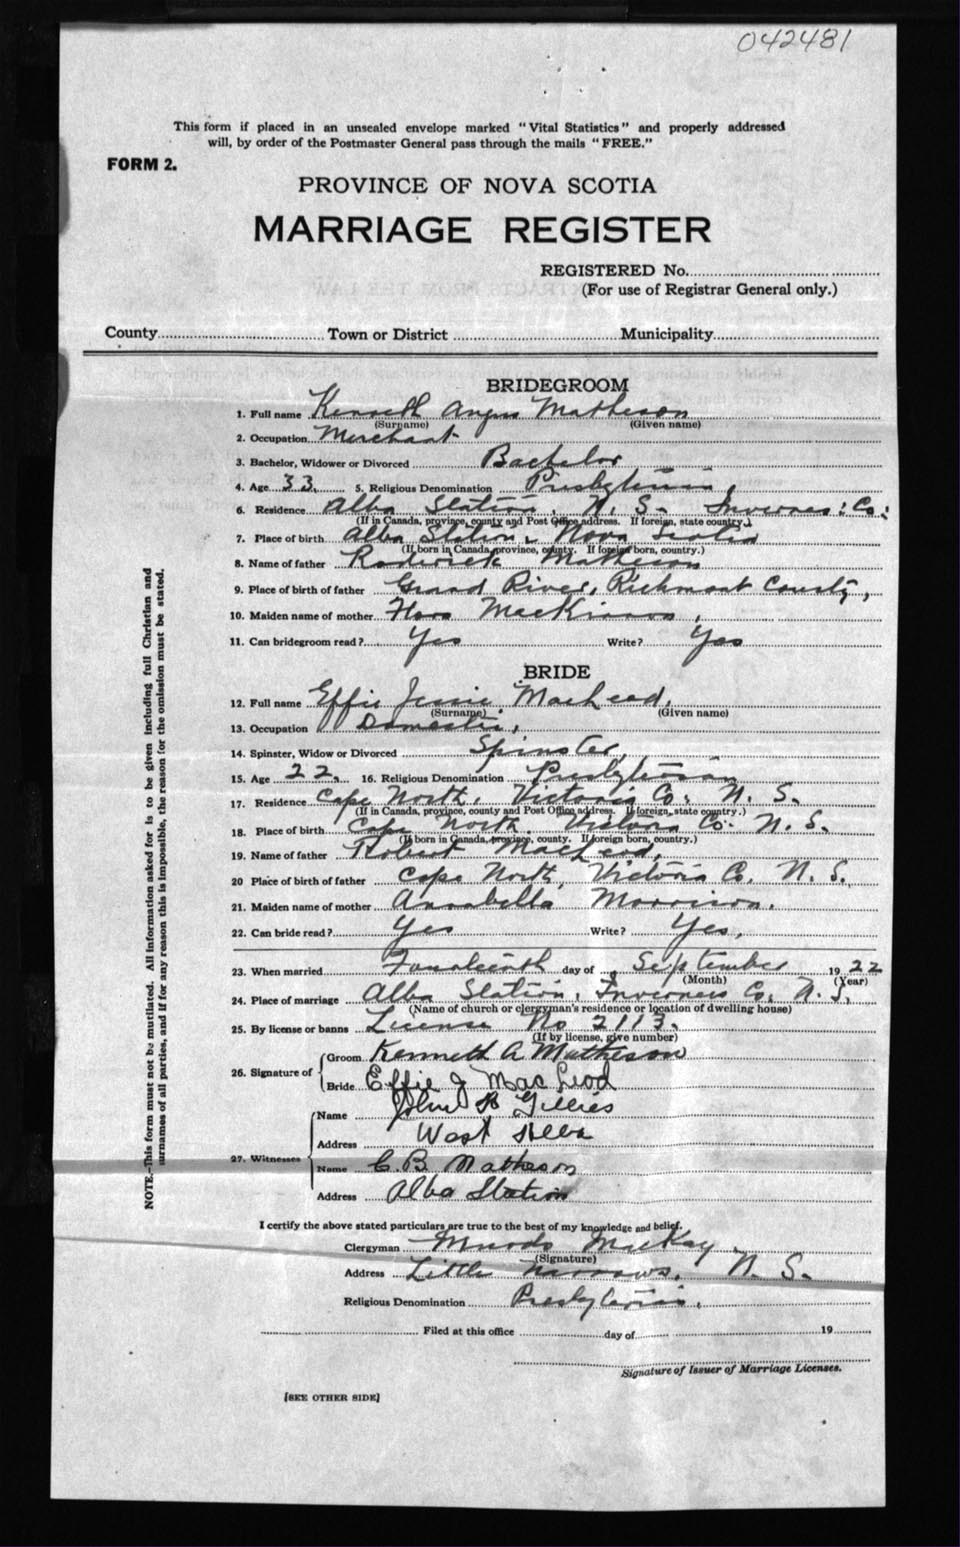 042481
This form if placed in an unsealed envelope marked "Vital Statistics" and properly addressed
will, by order of the Postmaster General pass through the mails "FREE."
FORM 2.
PROVINCE OF NOVA SCOTIA
MARRIAGE REGISTER
REGISTERED No.
(For use of Registrar General only.)
County Town or District Municipality
BRIDEGROOM
1. Full name Kenneth Angus Matheson
(Surname) (Given name)
2. Occupation Merchant
3. Bachelor, Widower or Divorced Bachelor
4. Age 33. 5. Religious Denomination Presbyterian.
6. Residence Alba Station, N. S. Inverness: Co:
(If in Canada, province, county and Post Office address. If foreign, state country.)
7. Place of birth Alba Station, Nova Scotia
(If born in Canada, province, county. If foreign born, country.)
8. Name of father Roderick Matheson
9. Place of birth of father Grand River, Richmont County,
10. Maiden name of mother MacKinnon,
11. Can bridegroom read? Yes Write? Yes
BRIDE
12. Full name Effie Jessie MacLeod,
(Surname) (Given name)
13. Occupation Domestic,
14. Spinster, Widow or Divorced Spinster,
15. Age 22. 16. Religious Denomination Presbyterian
17. Residence Cape North, Victoria Co. N. S.
(If in Canada, province, county and Post Office address. If foreign, state country.)
18. Place of birth Cape North, Victoria Co. N. S.
(If born in Canada, province, county. If foreign born, country.)
19. Name of father Robert MacLeod,
20 Place of birth of father Cape North, Victoria Co. N. S.
21. Maiden name of mother Annabella Morrison.
22. Can bride read? Yes Write? Yes,
23. When married Fourteenth day of September 1922
(Month) (Year)
24. Place of marriage Alba Station, Inverness Co. N. S.
(Name of church or clergyman's residence or location of dwelling house)
25. By license or banns License No 2113.
(If by license, give number)
26. Signature of Groom Kenneth A Matheson
Bride Effie J MacLeod
27. Witnesses Name John Gillies
Address West
Name C. B. Matheson
Address Alba Station
I certify the above stated particulars are true to the best of my knowledge and belief.
Clergyman Murdo MacKay
(Signature)
Address Little Narrows, N. S.
Religious Denomination Presbyterian.
Filed at this office day of 19
Signature of Issuer of Marriage Licenses.
[SEE OTHER SIDE]
NOTE.—This form must not be mutilated. All information asked for is to be given including full Christian and
surnames of all parties, and if for any reason this is impossible, the reason for the omission must be stated.